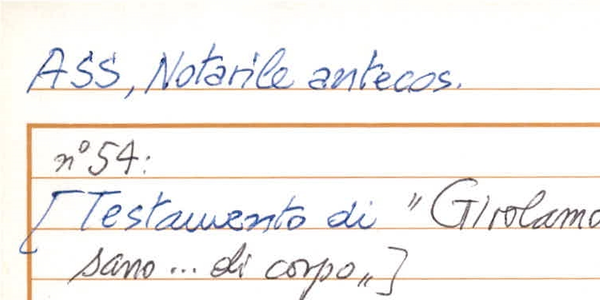 ASS, Notarile antecos.
n° 54:
[Testamento di "Girolamo
sano... di corpo"]